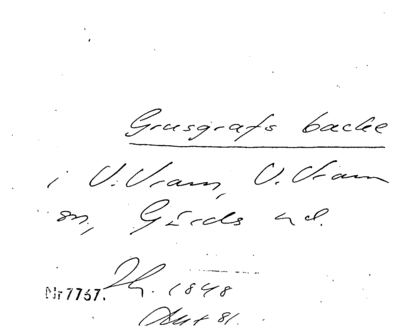 Grusgrafs backe
i V. Vram, V. Vram
sn, Gärds hd.
Nr 7767. 1848
Akt 81.